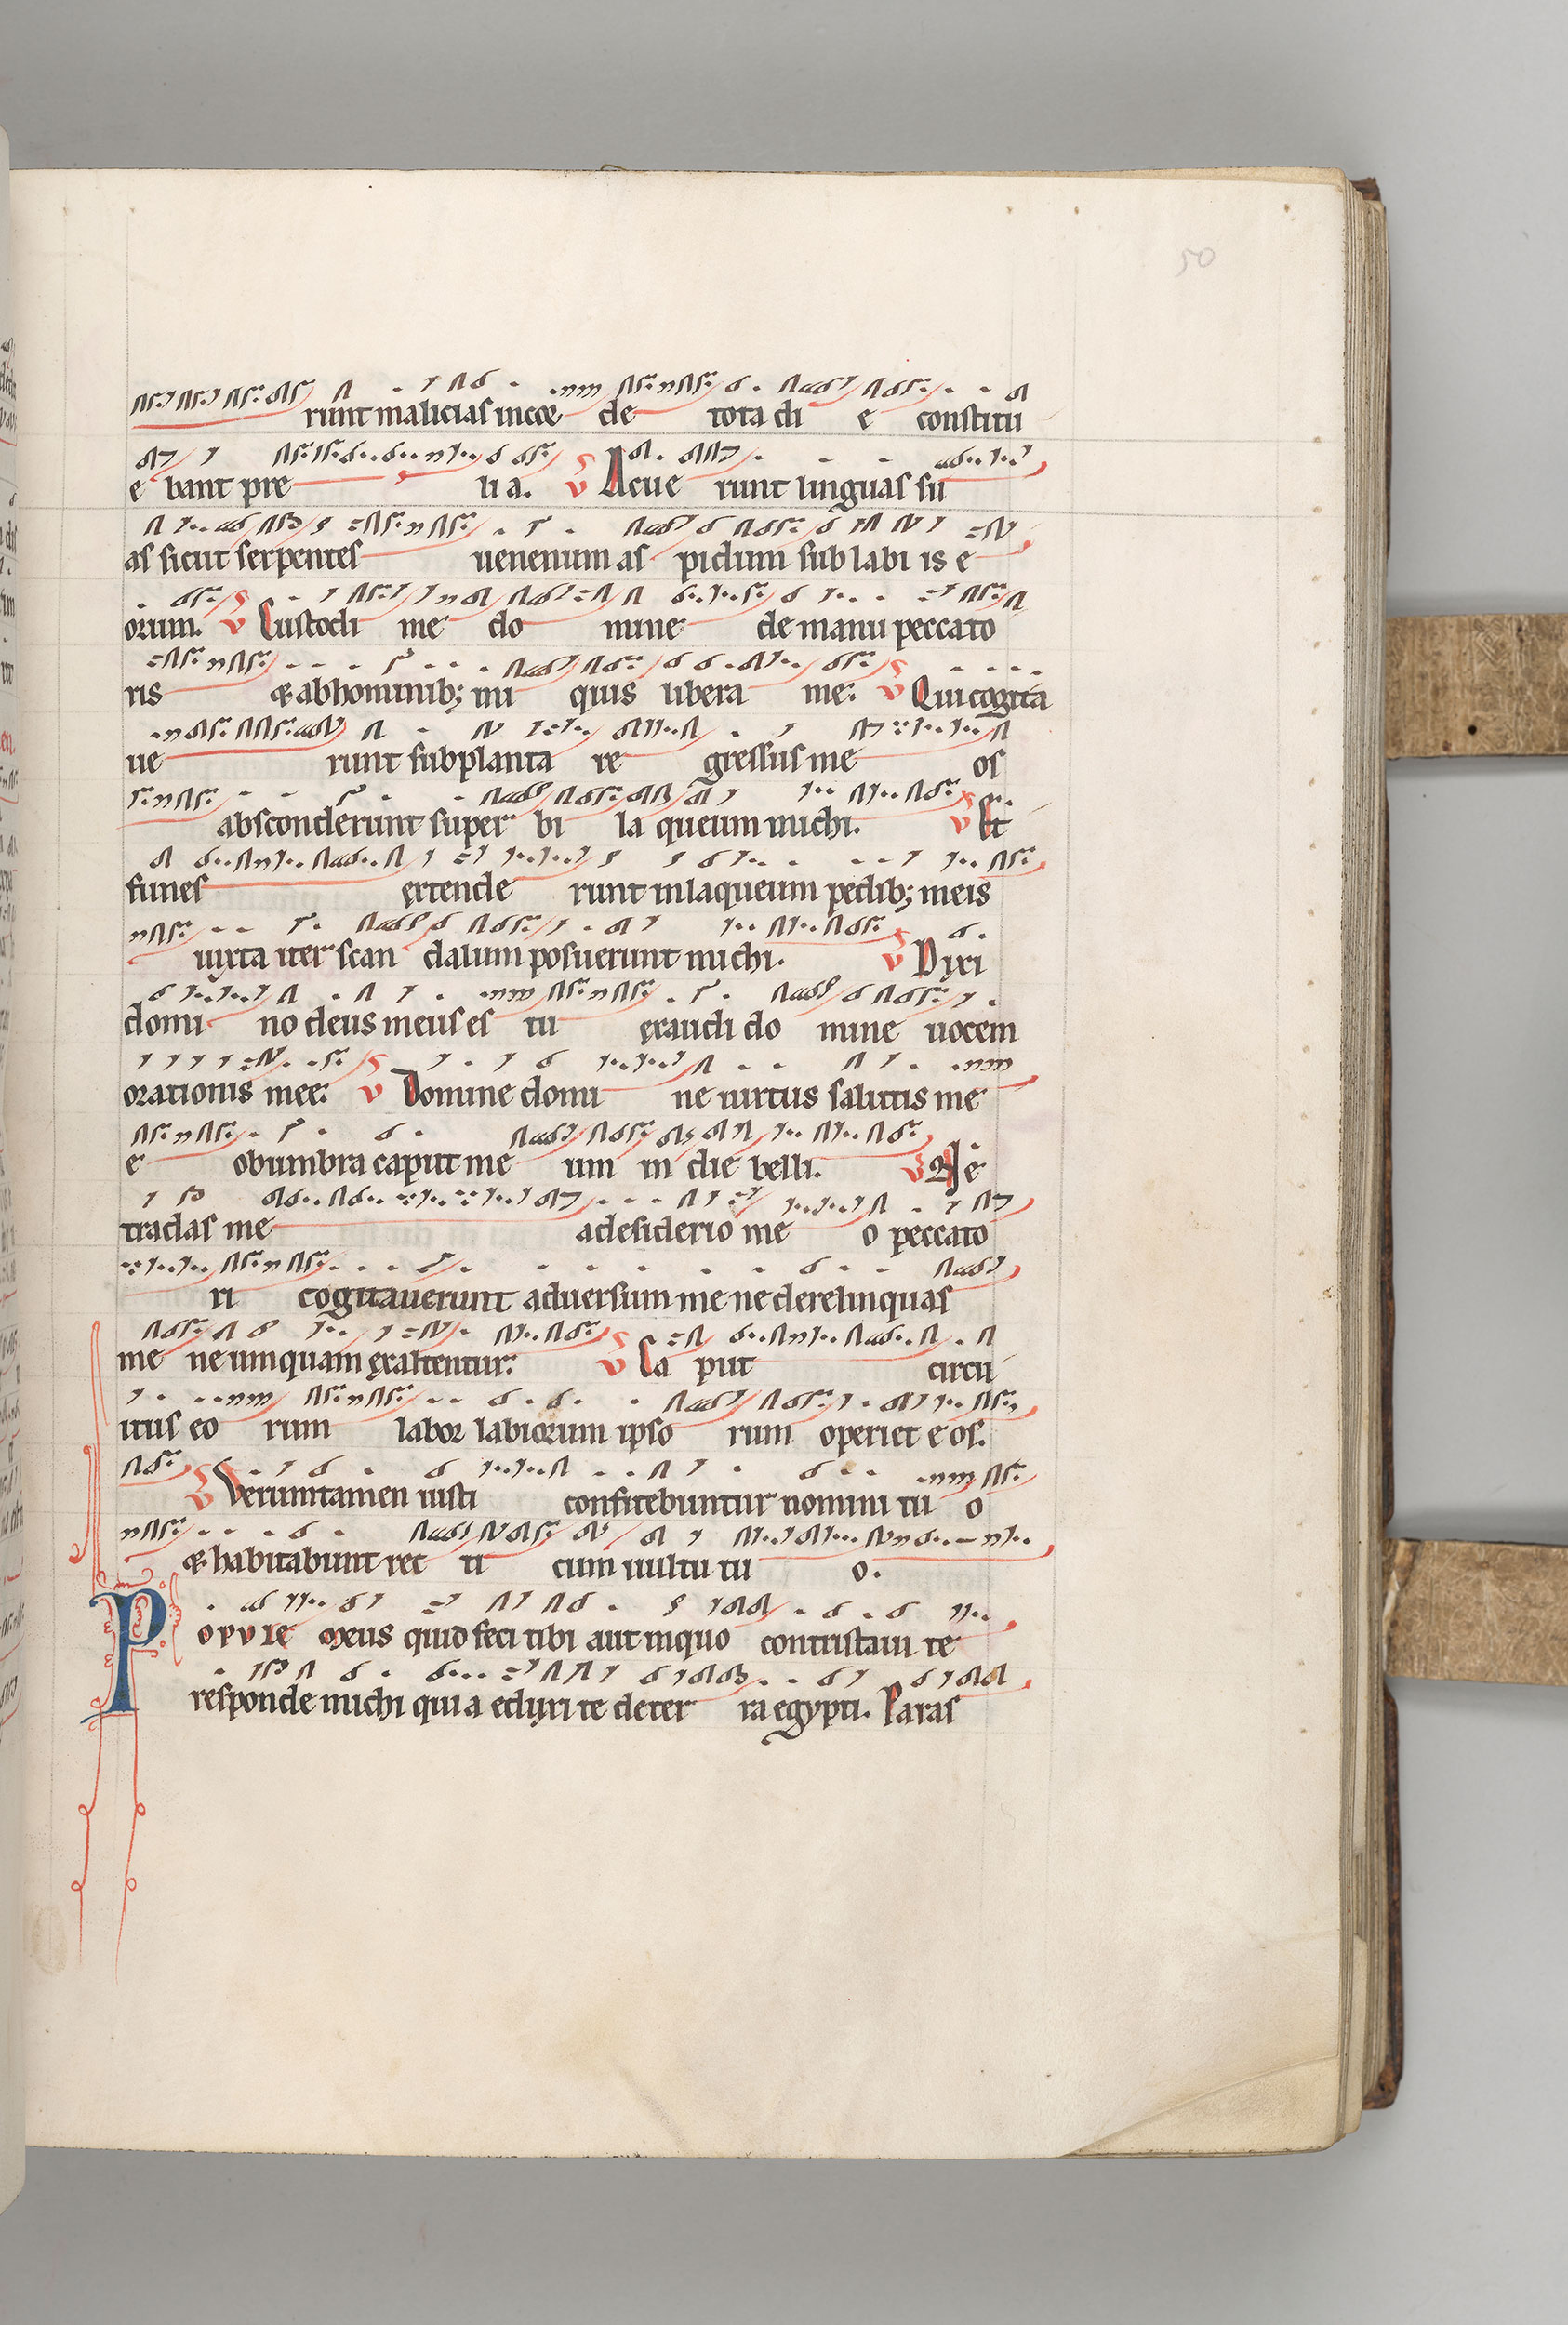 50
runt malicias in corde de tota di e constitu
e bant pre li a. v Acue runt linguas su
as sicut serpentes uenenum as pidum sub labi is e
orum. v Custodi me do mine de manu peccato
ris & ab hominib; ini quis libera me: v Qui cogita
ue runt subplanta re gressus me os
absconderunt super bi la queum michi. v Et
funes extende runt in laqueum pedib; meis
iuxta iter scan dalum posuerunt michi. v Dixi
domi no deus meus es tu exaudi do mine uocem
orationis mee: v Domine domi ne uirtus salutis me
e obumbra caput me um in die belli. v Ne
tradas me a desiderio me o peccato
ri cogitauerunt aduersum me ne derelinquas
me ne umquam exaltentur: v Ca put circu
itus eo rum labor labiorum ipso rum operiet e os.
v Veruntamen iusti confitebuntur nomini tu o
& habitabunt rec ti cum uultu tu o.
Popvle meus quid feci tibi aut in quo contristaui te
responde michi qui a eduxi te de ter ra egypti. Paras